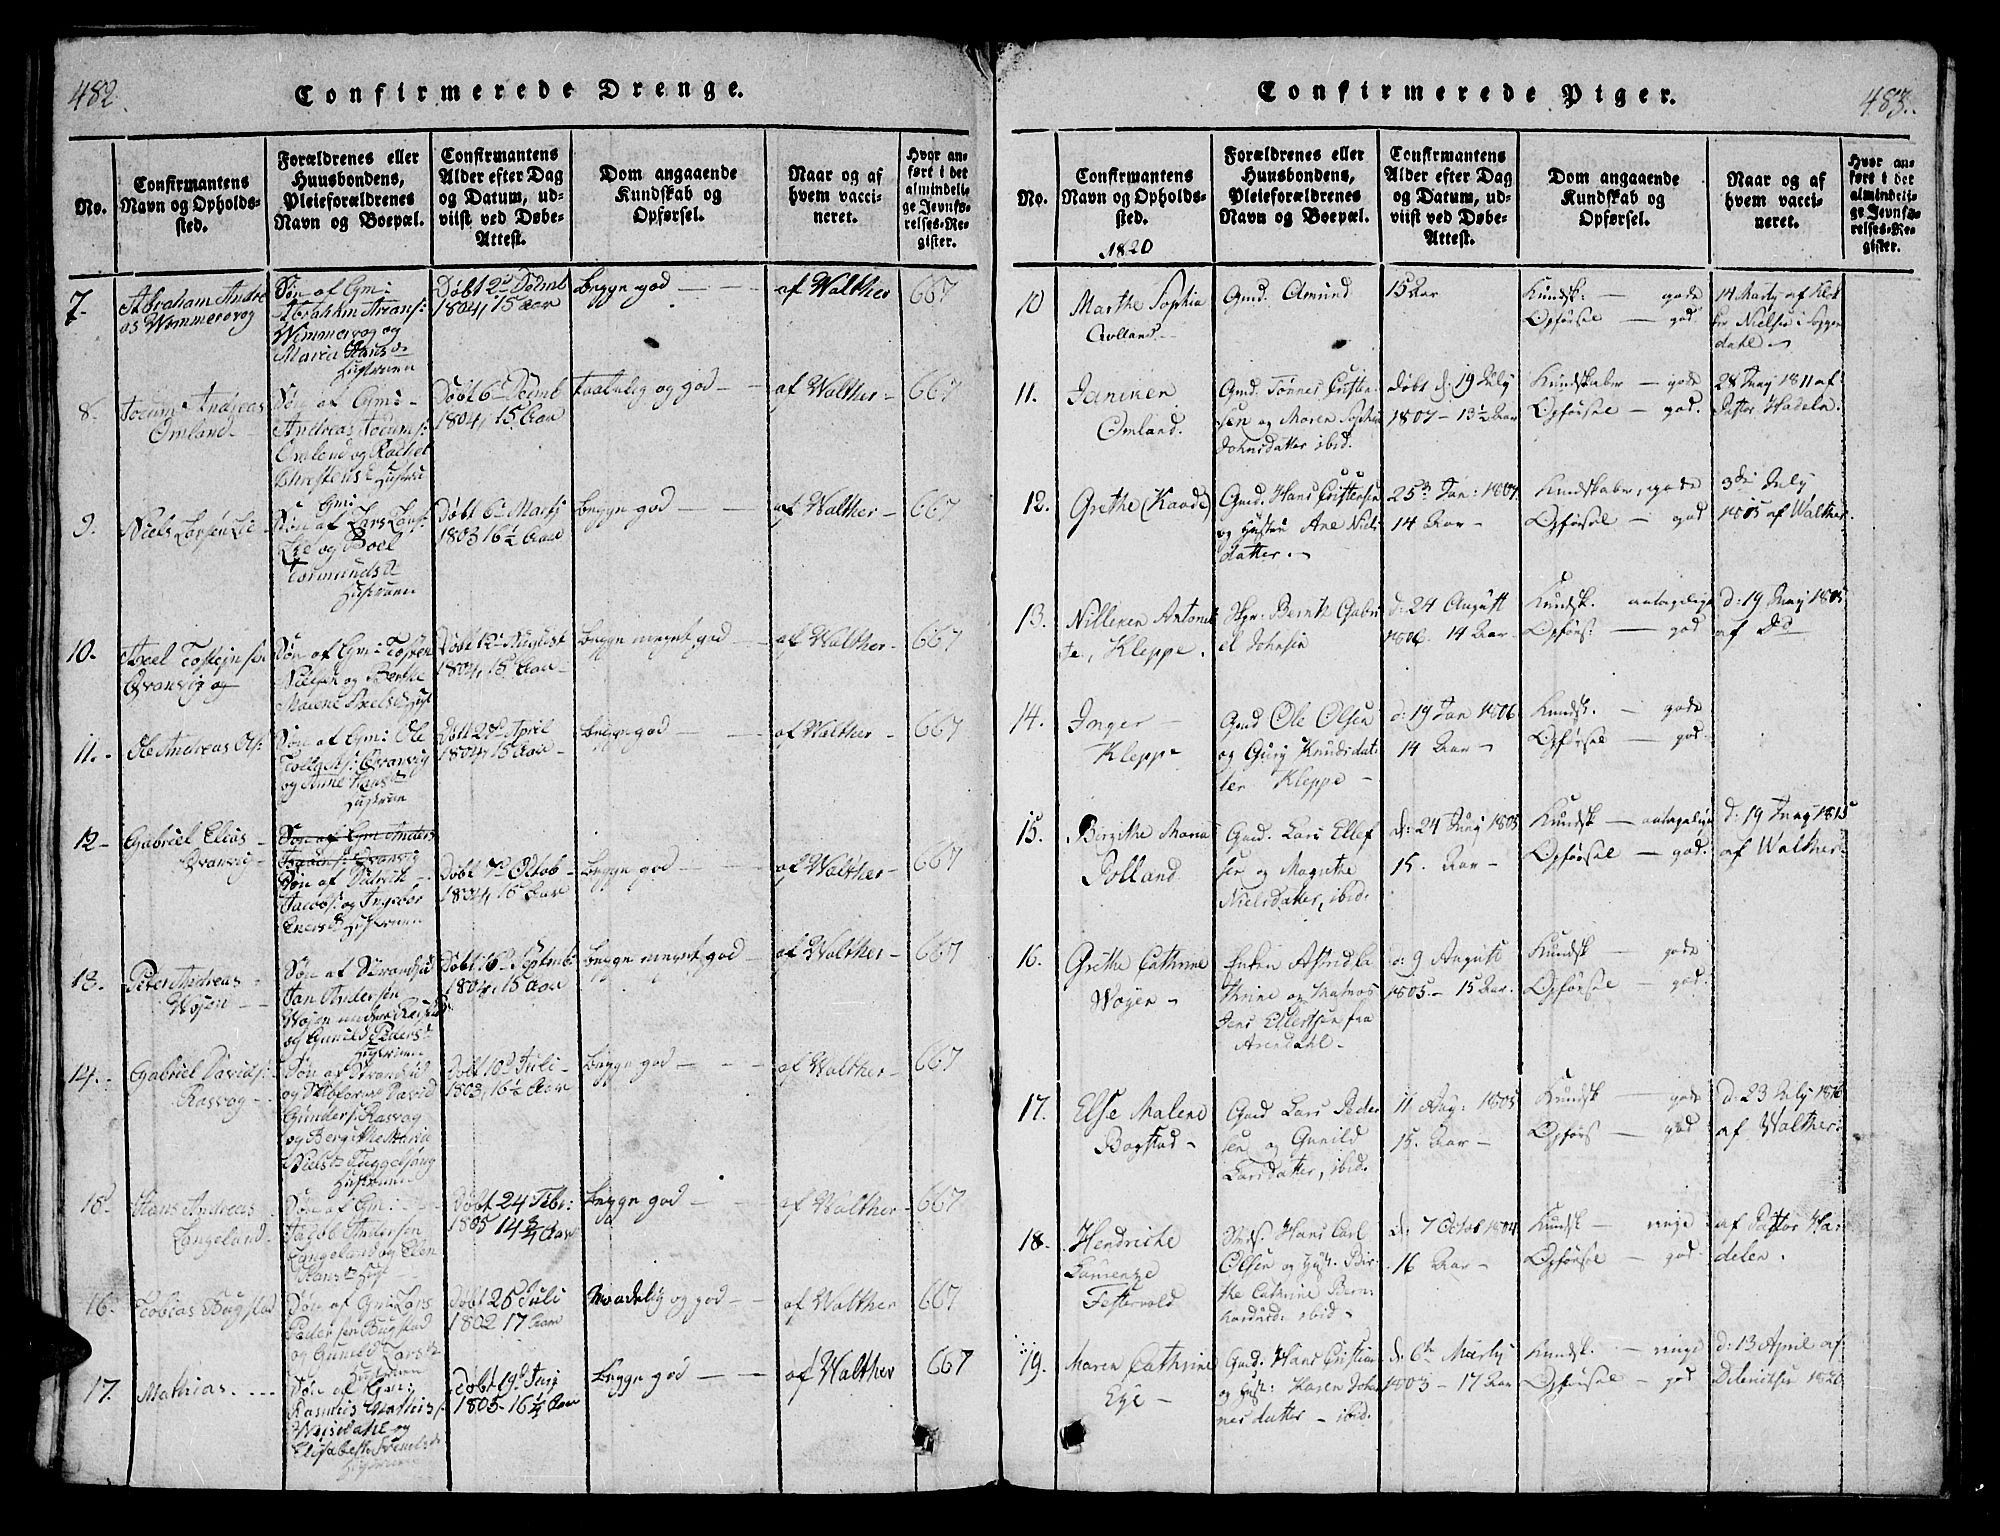 482.
Confirmerede Drenge.
No.
Confirmantens
Navn og Opholds-
sted.
Forældrenes eller
Huusbondens,
Pleieforældrenes
Navn og Boepæl.
Confirmantens
Alder efter Dag
og Datum, ud-
viist ved Døbe-
Attest.
Dom angaaende
Kundskab og
Opførsel.
Naar og af
hvem vacci-
neret.
Hvor an-
ført i det
almindeli-
ge Jevnfø-
relses-Re-
gister.
7.
Abraham Andre
as Wimmersvog
Søn af Gm:
Abrahim Arons:
Wimmersvog og
Maria Hansd
Hustruen
Døbt 2d
1804, 15 Aar
begge god — —
af Walther
667
8.
Jocum Andreas
Omland —
Søn af Gm: —
Andreas Jocums:
Omland og Rachel
Hustru
Døbt 6d
1804, 15 Aar
taalelig og god — —
af Walther —
667
9.
Niels Larsen Lie
Gm:
Søn af Lars Lars:
Lie og Boel
Tormundsd
Hustruen
Døbt 6d Martj
1803 16½ Aar
begge god — —
af Walther —
667
10.
Axel
Søn af Gm: Tosten
Nielsen og Berthe
Malene Axelsd Hust
Døbt 12d August
1804, 15 Aar —
begge meget god —
af Walther —
667
11. -
Ole Andreas Ols:
Søn af Gm: Ole
og Anne Hansd
Hustruen
April
1804, 15 Aar —
begge god — —
af Walther —
667
12 -
Gabriel Elias —
Søn af Gm Anders
Søn af Didrik —
Jacobs: og Ingebor
Enersd Hustruen
Døbt 7d Octob
1804, 15 Aar
begge god — —
af Walther —
667
13.
Peter Andreas
Wojen — —
Søn af Strandsid
Jan Andersen
og Gunild
Hustruen
Døbt 16d Septemb:
1804, 15 Aar
begge meget god
af Walther —
667
14.
Gabriel Davids:
Rasvog —
Søn af Strandsid
og David
Gunders: Rasvog
og Bergithe Maria
Hustruen
Døbt 10d Juli —
1803, 16½ Aar
begge god — —
af Walther —
667
15.
Hans Andreas
Langeland.
Søn af Gm: —
Jacob Andersen
Langeland og Elen
Hansd Hust —
Døbt 24 Febr:
1805 14¾ Aar
begge god — —
af Walther —
667
16.
Tobias Bugstad
Søn af Gm: Lars
Pedersen Bugstad
og Gunild Larsd
Hustruen
Døbt 25d Juli
1802 17 Aar
Maadelig og god — —
af Walther —
667
17.
Mathias. - - -
Søn af Gm:
Rasmus Mathis:
og
Elisabeth
Hustruen
Døbt 19d
1803 - 16¼ Aar
begge god — —
af Walther
667
483.
Confirmerede Piger.
No.
Confirmantens
Navn og Opholds-
sted.
1820
Forældrenes eller
Huusbondens,
Pleieforældrenes
Navn og Boepæl.
Confirmantens
Alder efter Dag
og Datum, ud-
viist ved Døbe-
Attest.
Dom angaaende
Kundskab og
Opførsel.
Naar og af
hvem vacci-
neret.
Hvor an-
ført i det
almindeli-
ge Jevnfø-
relses-Re-
gister.
10
Marthe Sophia
Gmd. Amund
15 Aar
Kundsk: — gode
Opførsel — god
14 Martj af Klok
ker Nielsen i Soggen
dahl —
11.
Janiken
Omland.
Gmd. Tønnes Christen
sen og Maren Sophia
Johnsdatter ibid.
døbt d: 19 July
1807 - 13½ Aar
Kundskaber — gode
Opførsel — god.
28 Juny 1811 af
Pastor Hadeln.
12.
Grethe (Kaade)
Gmd. Hans Cristensen
og Hustru Ane Niels
datter. —
25d Jan: 1807.
14 Aar —
Kundskaber, gode
Opførsel — god
3die July
1805 af Walther
13.
Nilleken Antonet
te, Kleppe.
Skpr. Bernte Gabri
el Johnsen
d: 24 Augutt
1806. 14 Aar —
Kundsk. antagelige
Opførs: — god
d: 19 Juny 1805
af Do
14.
Inger —
Kleppe
Gmd Ole Olsen
og Gury Knudsdat
ter Kleppe —
d: 19 Jan 1806
14 Aar —
Kundsk. — gode
Opførsel — god.
15.
Birgithe Maria
Polland
Gmd. Lars Ellef
sen og Magrethe
Nielsdatter, ibid.
d: 24 Juny 1805
15. Aar —
Kundsk — antagelige
Opførsel — god.
d: 19 Juny 1815
af Walther
16.
Grethe Cathrine
Wojen —
Enken Astridka
thrine og Matros
Jens Ellertsen fra
Arendahl —
d: 9 Augutt
1805. — 15 Aar.
Kundsk — gode
Opførsel — god.
17.
Else Malene
Bogstad —
Gmd Lars Peder
sen og Gunild
Larsdatter, ibid.
11 Aug: 1805
15. Aar —
Kundsk — gode
Opførs — god
d. 23 July 1816
af Walther
18.
Hendriche
Festervold
Hans Carl
Olsen og Hust. Bir
the Cathrine Bern
hardsd: ibid —
d: 7 Octob 1804
16 Aar —
Kundsk — ringe
Opførsel — god
af Pastor Ha
delen.
19.
Maren Cathrine
Eye —
Gmd: Hans Cristian
og Hust: Karen Johan
nesdatter — ibid.
d: 6te Martj
1803 — 17 Aar
Kundsk. — ringe
Opførsel — god
d: 13 April af
1820